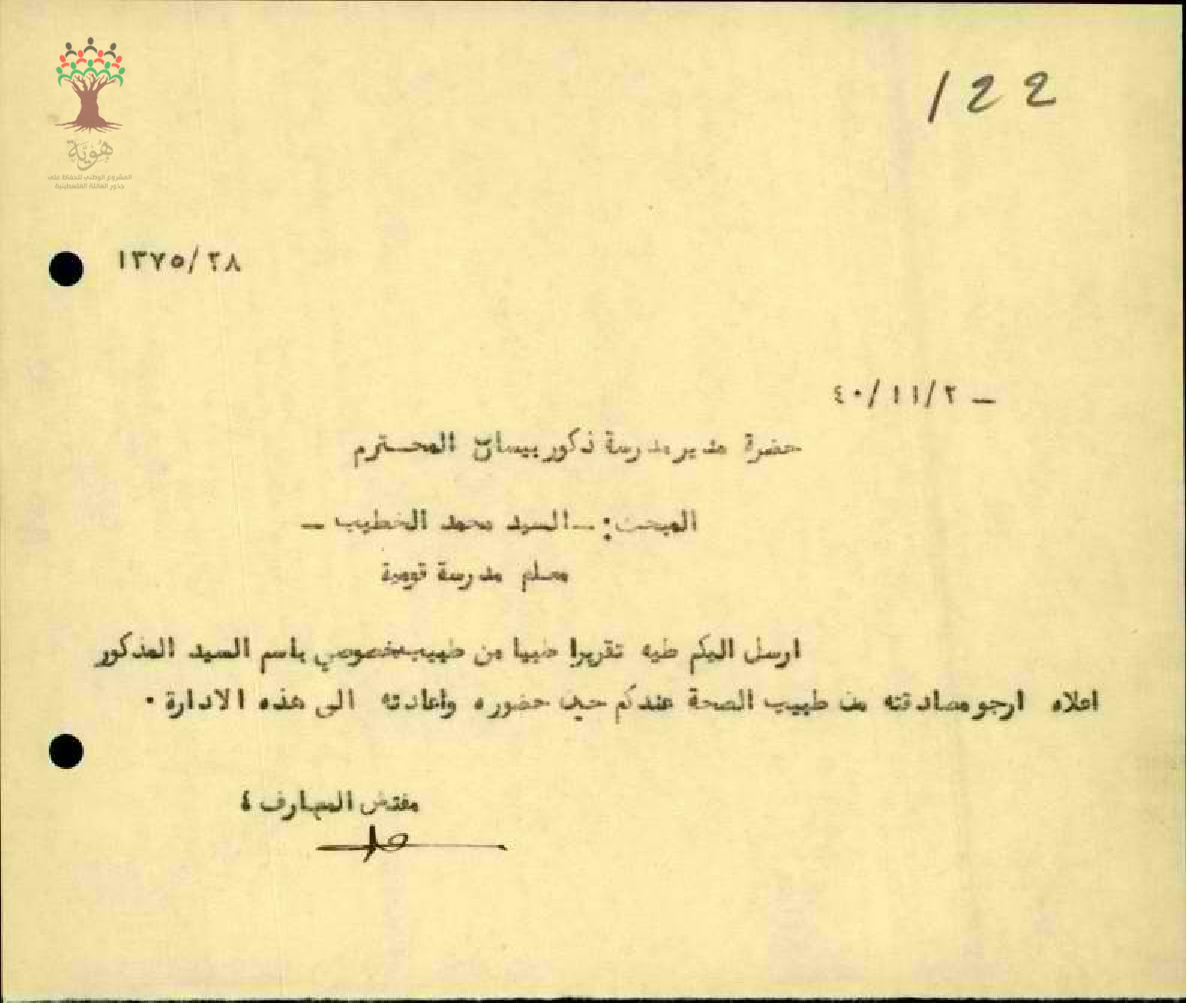 122
هوية
المشروع الوطني للحفاظ على
جذور العائلة الفلسطينية
١٣٧٥/٢٨
٤٠/١١/٢ –
حضرة مدير مدرسة ذكور بيسان المحترم
المبحث:ـ السيد محمد الخطيب –
معلم مدرسة قومية
ارسل اليكم طيه تقريرا طبيا من طبيب خصوصي باسم السيد المذكور
اعلاه ارجو مصادقته من طبيب الصحة عندكم حين حضوره واعادته الى هذه الادارة .
مفتش المعارف ،